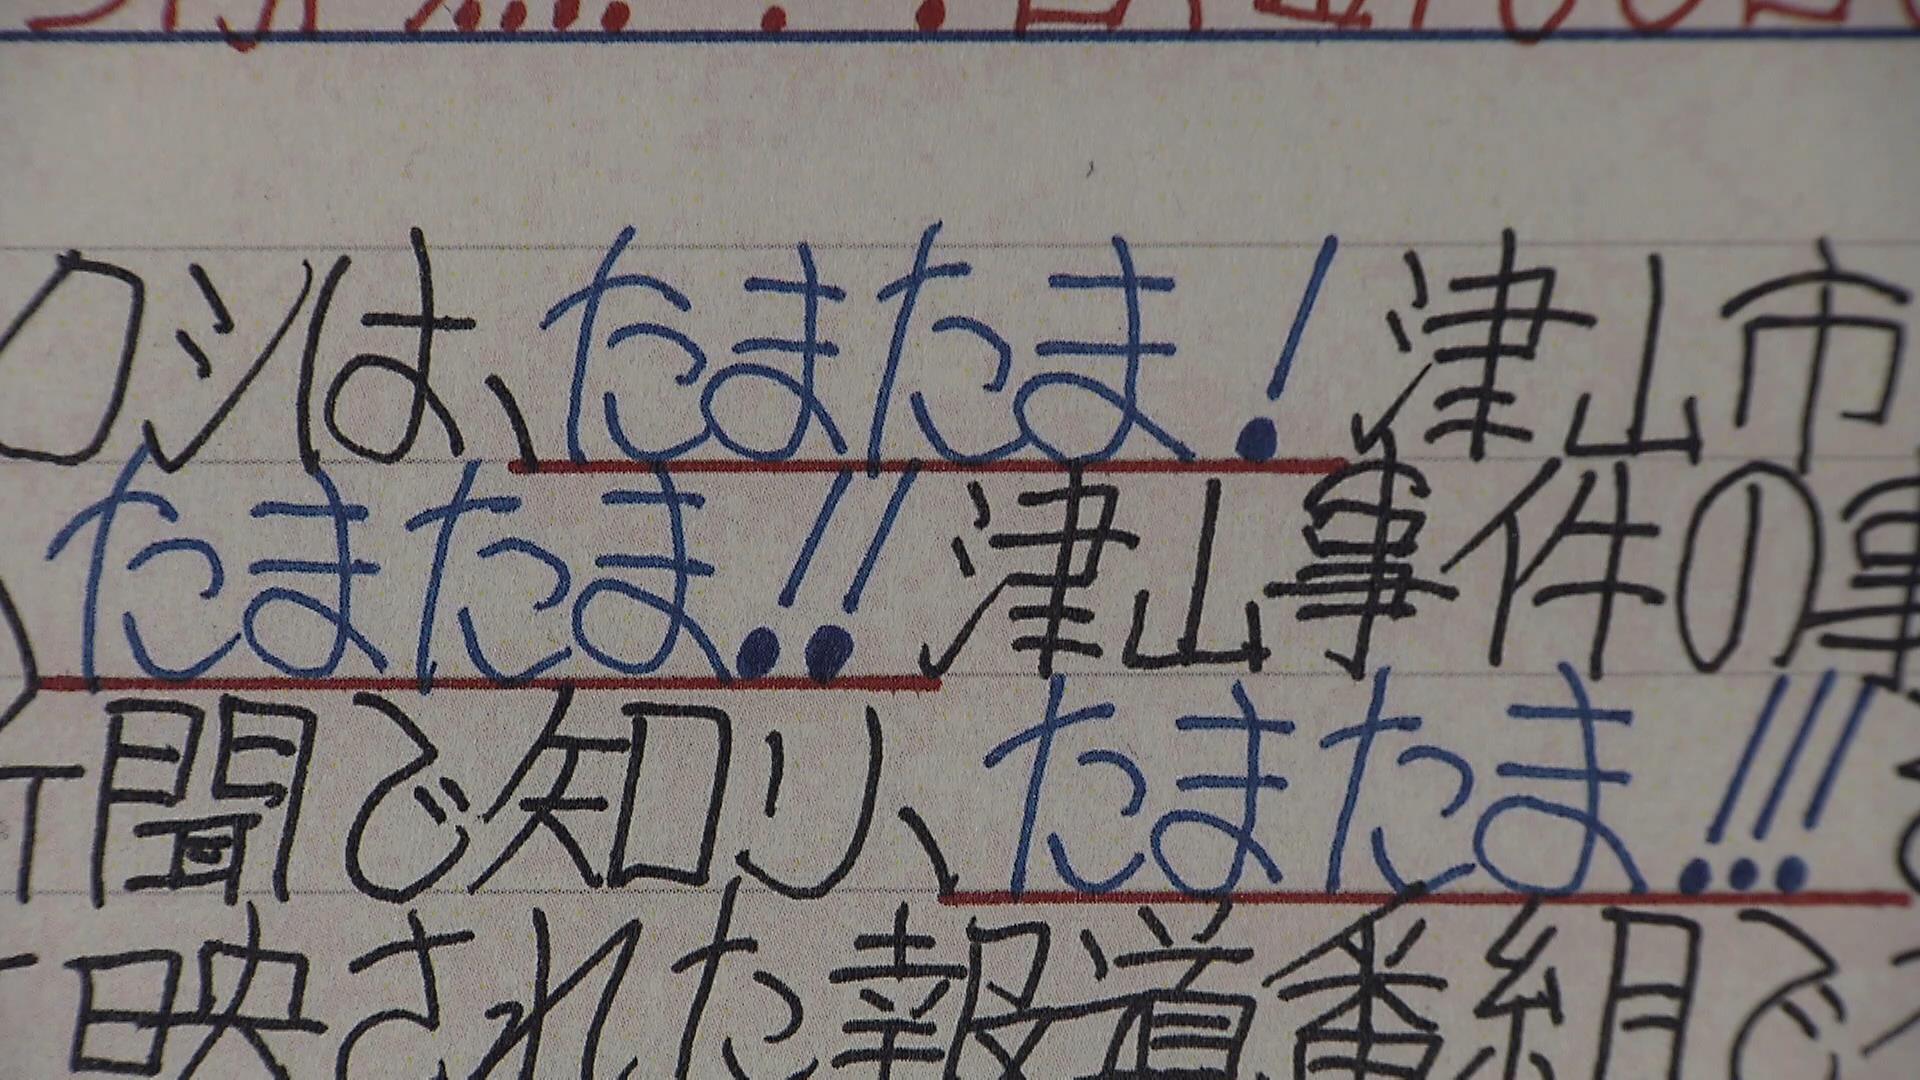 クシは、たまたま！津山市
たまたま！！津山事件の事
聞で知り、たまたま！！！
映された報道番組で